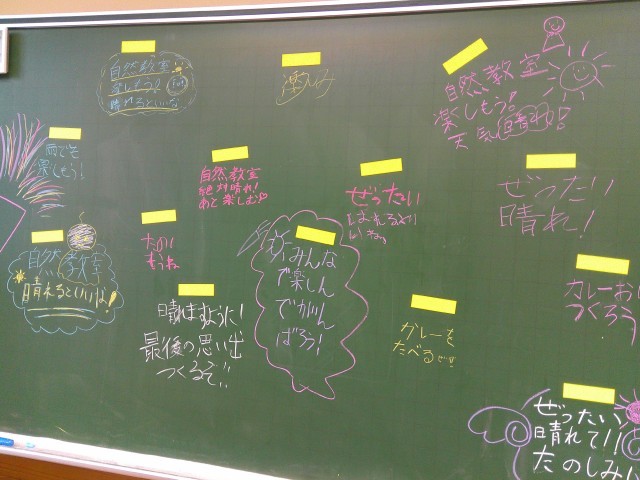 自然教室
楽しもう!
晴れるといいな
楽しみ
自然教室
楽しもう!
天気晴れろ!
雨でも
楽しもう!
自然教室
絶対晴れ!
あと楽しむ
ぜったい
はれるといいね
ぜったい
晴れ!
たのし
もうね
みんな
で楽しん
でがん
ばろう!
自然教室
晴れるといいな!
晴れますように!
最後の思い出
つくるぞ!!
カレーを
たべるぜ!!
カレーお
つくろう
ぜったい
晴れて!!
たのしみ